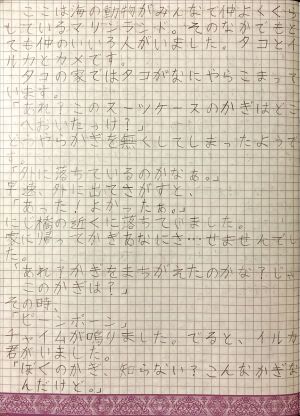 ここは海の動物がみんなで仲よくくら
しているマリンランド。そのなかでもと
ても仲のいい3人がいました。タコとイ
ルカとカメです。
タコの家ではタコがなにやらこまって
います。
「あれ?このスーツケースのかぎはどこ
へおいたっけ?」
どうやらかぎを無くしてしまったようで
す。
「外に落ちているのかなぁ。」
早速、外に出てさがすと、
「あった!よかったぁ。」
にじ橋の近くに落ちていました。
家に帰ってかぎあなにさ…せませんでし
た。
「あれ?かぎをまちがえたのかな?じゃ
このかぎは?」
その時、
「ピーンポーン」
チャイムが鳴りました。でると、イルカ
君がいました。
「ぼくのかぎ、知らない?こんなかぎな
んだけど。」